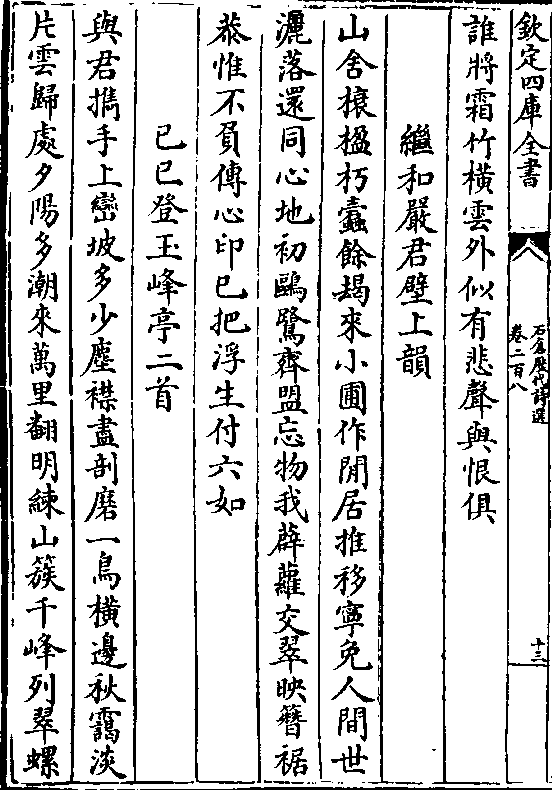 欽定四庫全書
石倉歷代詩選
卷二百八
十三
誰將霜竹橫雲外似有悲聲與恨俱
繼和嚴君壁上韻
山舍榱楹朽蠹餘朅來小圃作閒居推移寧免人間世
灑落還同心地初鷗鷺齊盟忘物我薜蘿交翠映簪裾
恭惟不負傳心印已把浮生付六如
已巳登玉峰亭二首
與君擕手上巒坡多少塵襟盡剖磨一鳥橫邊秋靄淡
片雲歸處夕陽多潮來萬里翻明練山簇千峰列翠螺